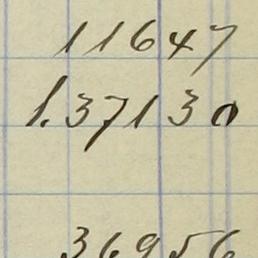 11647
1.37130
36956